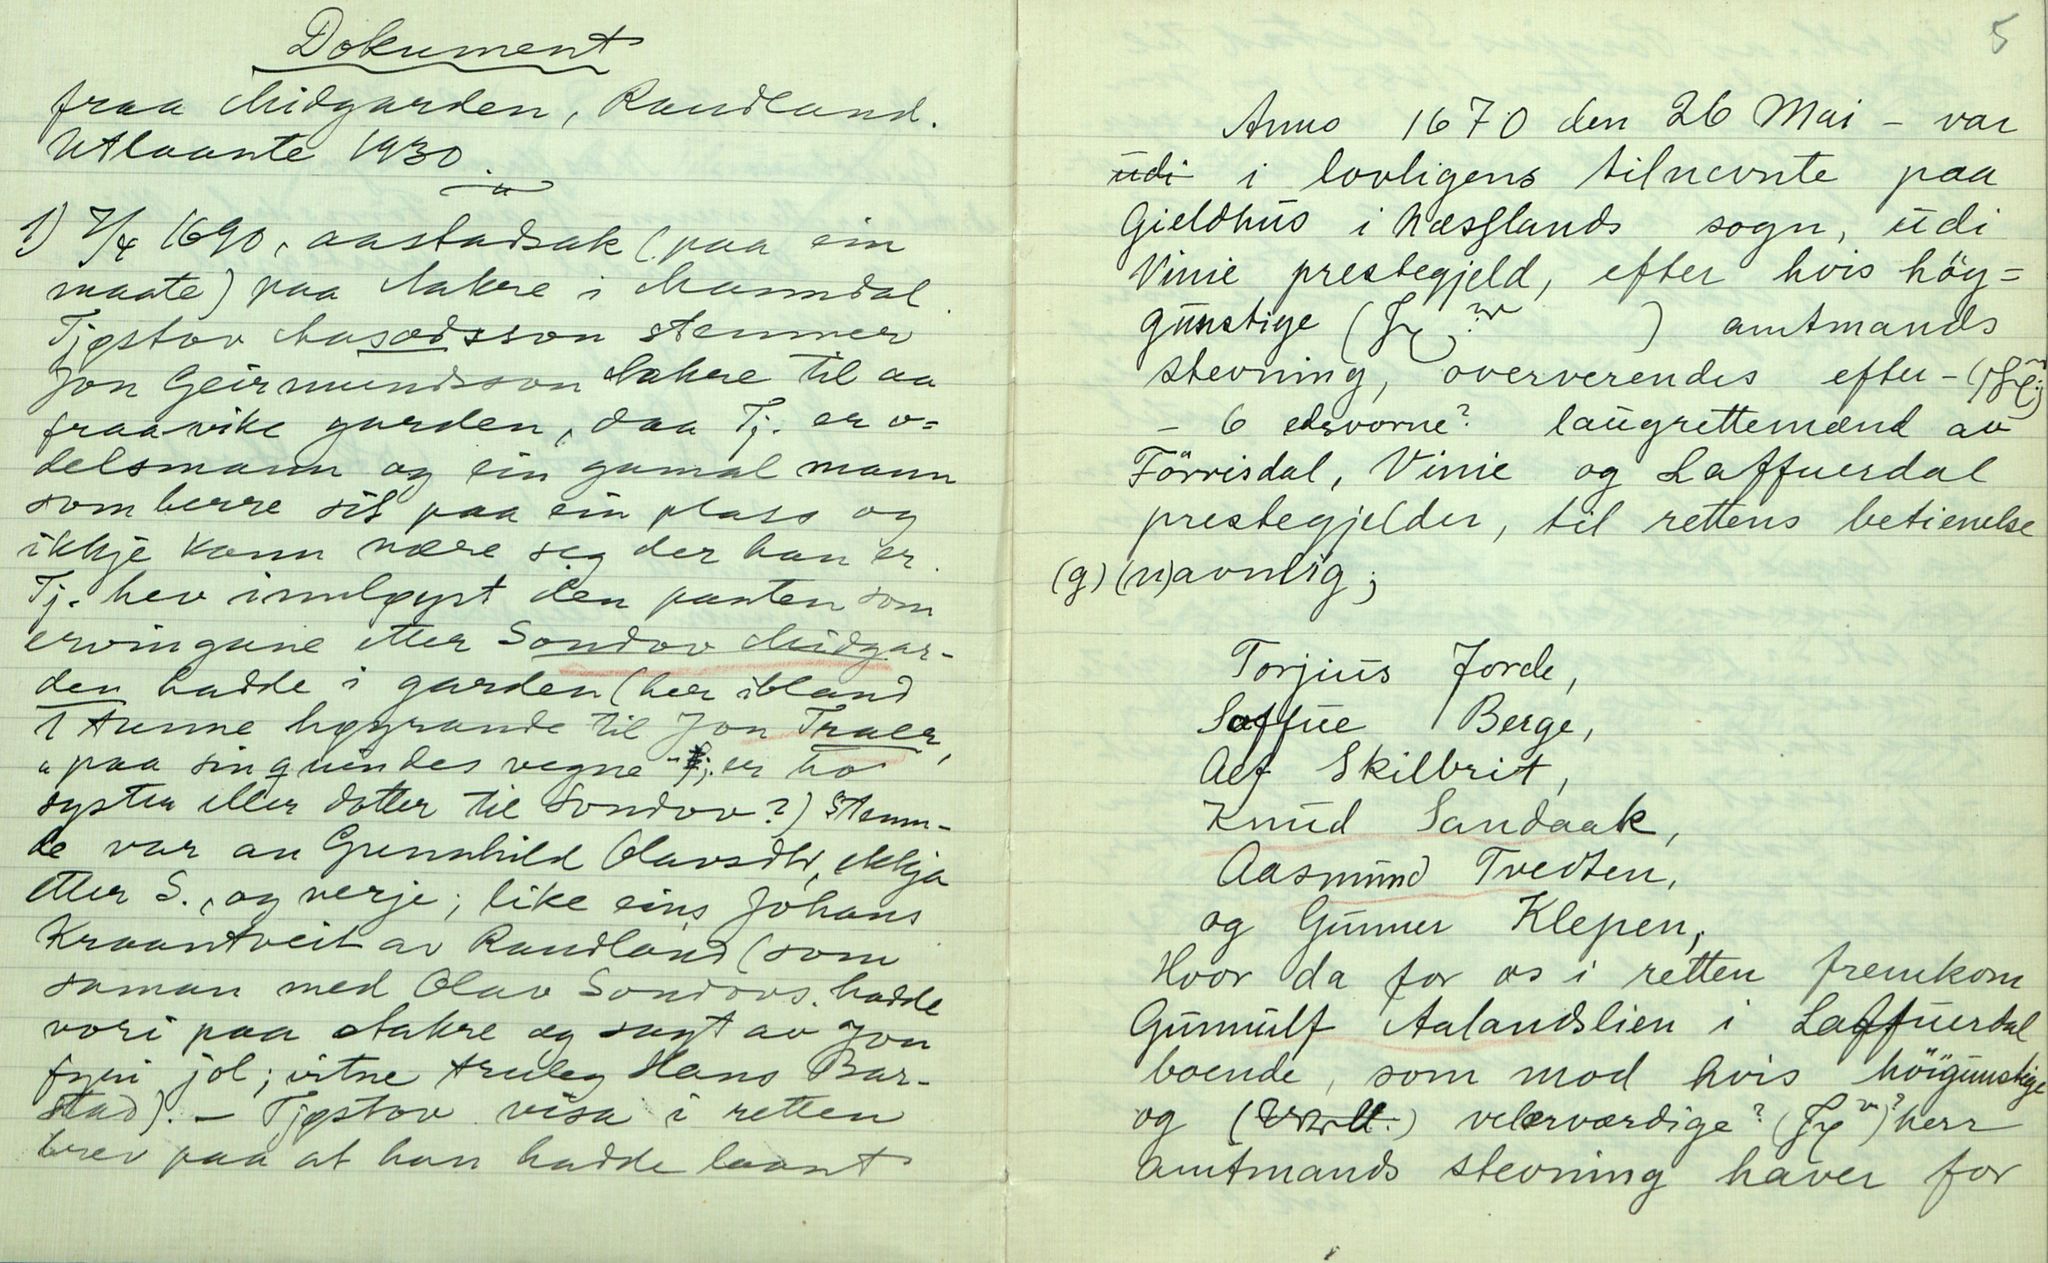 Dokument
fraa Midgarden, Raudland.
Utlaante 1930
1) 7/4 1690, aastadsak (paa ein
maate) paa Aakre i Manndal
Tjøstov Aasodsson stemner
Jon Geirmundsson Aakre til aa
fraavike garden, daa Tj. er o=
delsmann og ein gamal mann
som berre sit paa ein plass og
ikkje kann nære seg der han er.
Tj. hev innløyst den parten som
ervingane etter Sondov Midgar-
den hadde i garden (her ibland
1 tunne høyrande til Jon Traer,
"paa sin quindes vegne" er ho
syster eller dotter til Sondov?) Stemn-
de var au Gunnhild Olavsdtr, ekkja
etter S., og verje; like eins Johans
Kraantveit av Raudland (som
saman med Olav Sondovs. hadde
vori paa Aakre og sagt av Jon
fyri jol; vitne truleg Hans Bar-
stad). – Tjøstov visa i retten
brev paa at han hadde laant
5
Anno 1670 den 26 Mai – var
udi i lovligens tilnevnte paa
Gieldhus i Næsslands sogn, udi
Vinie prestegjeld, efter hvis høy=
gunstige ( ? ) amtmands
stevning, oververendes efter –
– 6 edsvorne? laugrettemænd av
Förrisdal, Vinie og Laffuerdal
prestegjelder, til rettens betienelse
(g) (n)avnlig;
Torjius Jorde,
Saffue Berge,
Alf Skilbrit,
Knud Sandaak,
Aasmund Tvedten,
og Gunner Klepen,
Hvor da for os i retten fremkom
Gunnulf Aalandslien i Laffuerdal
boende, som mod hvis höigunstige
og velærværdige? herr
amtmands stevning haver for